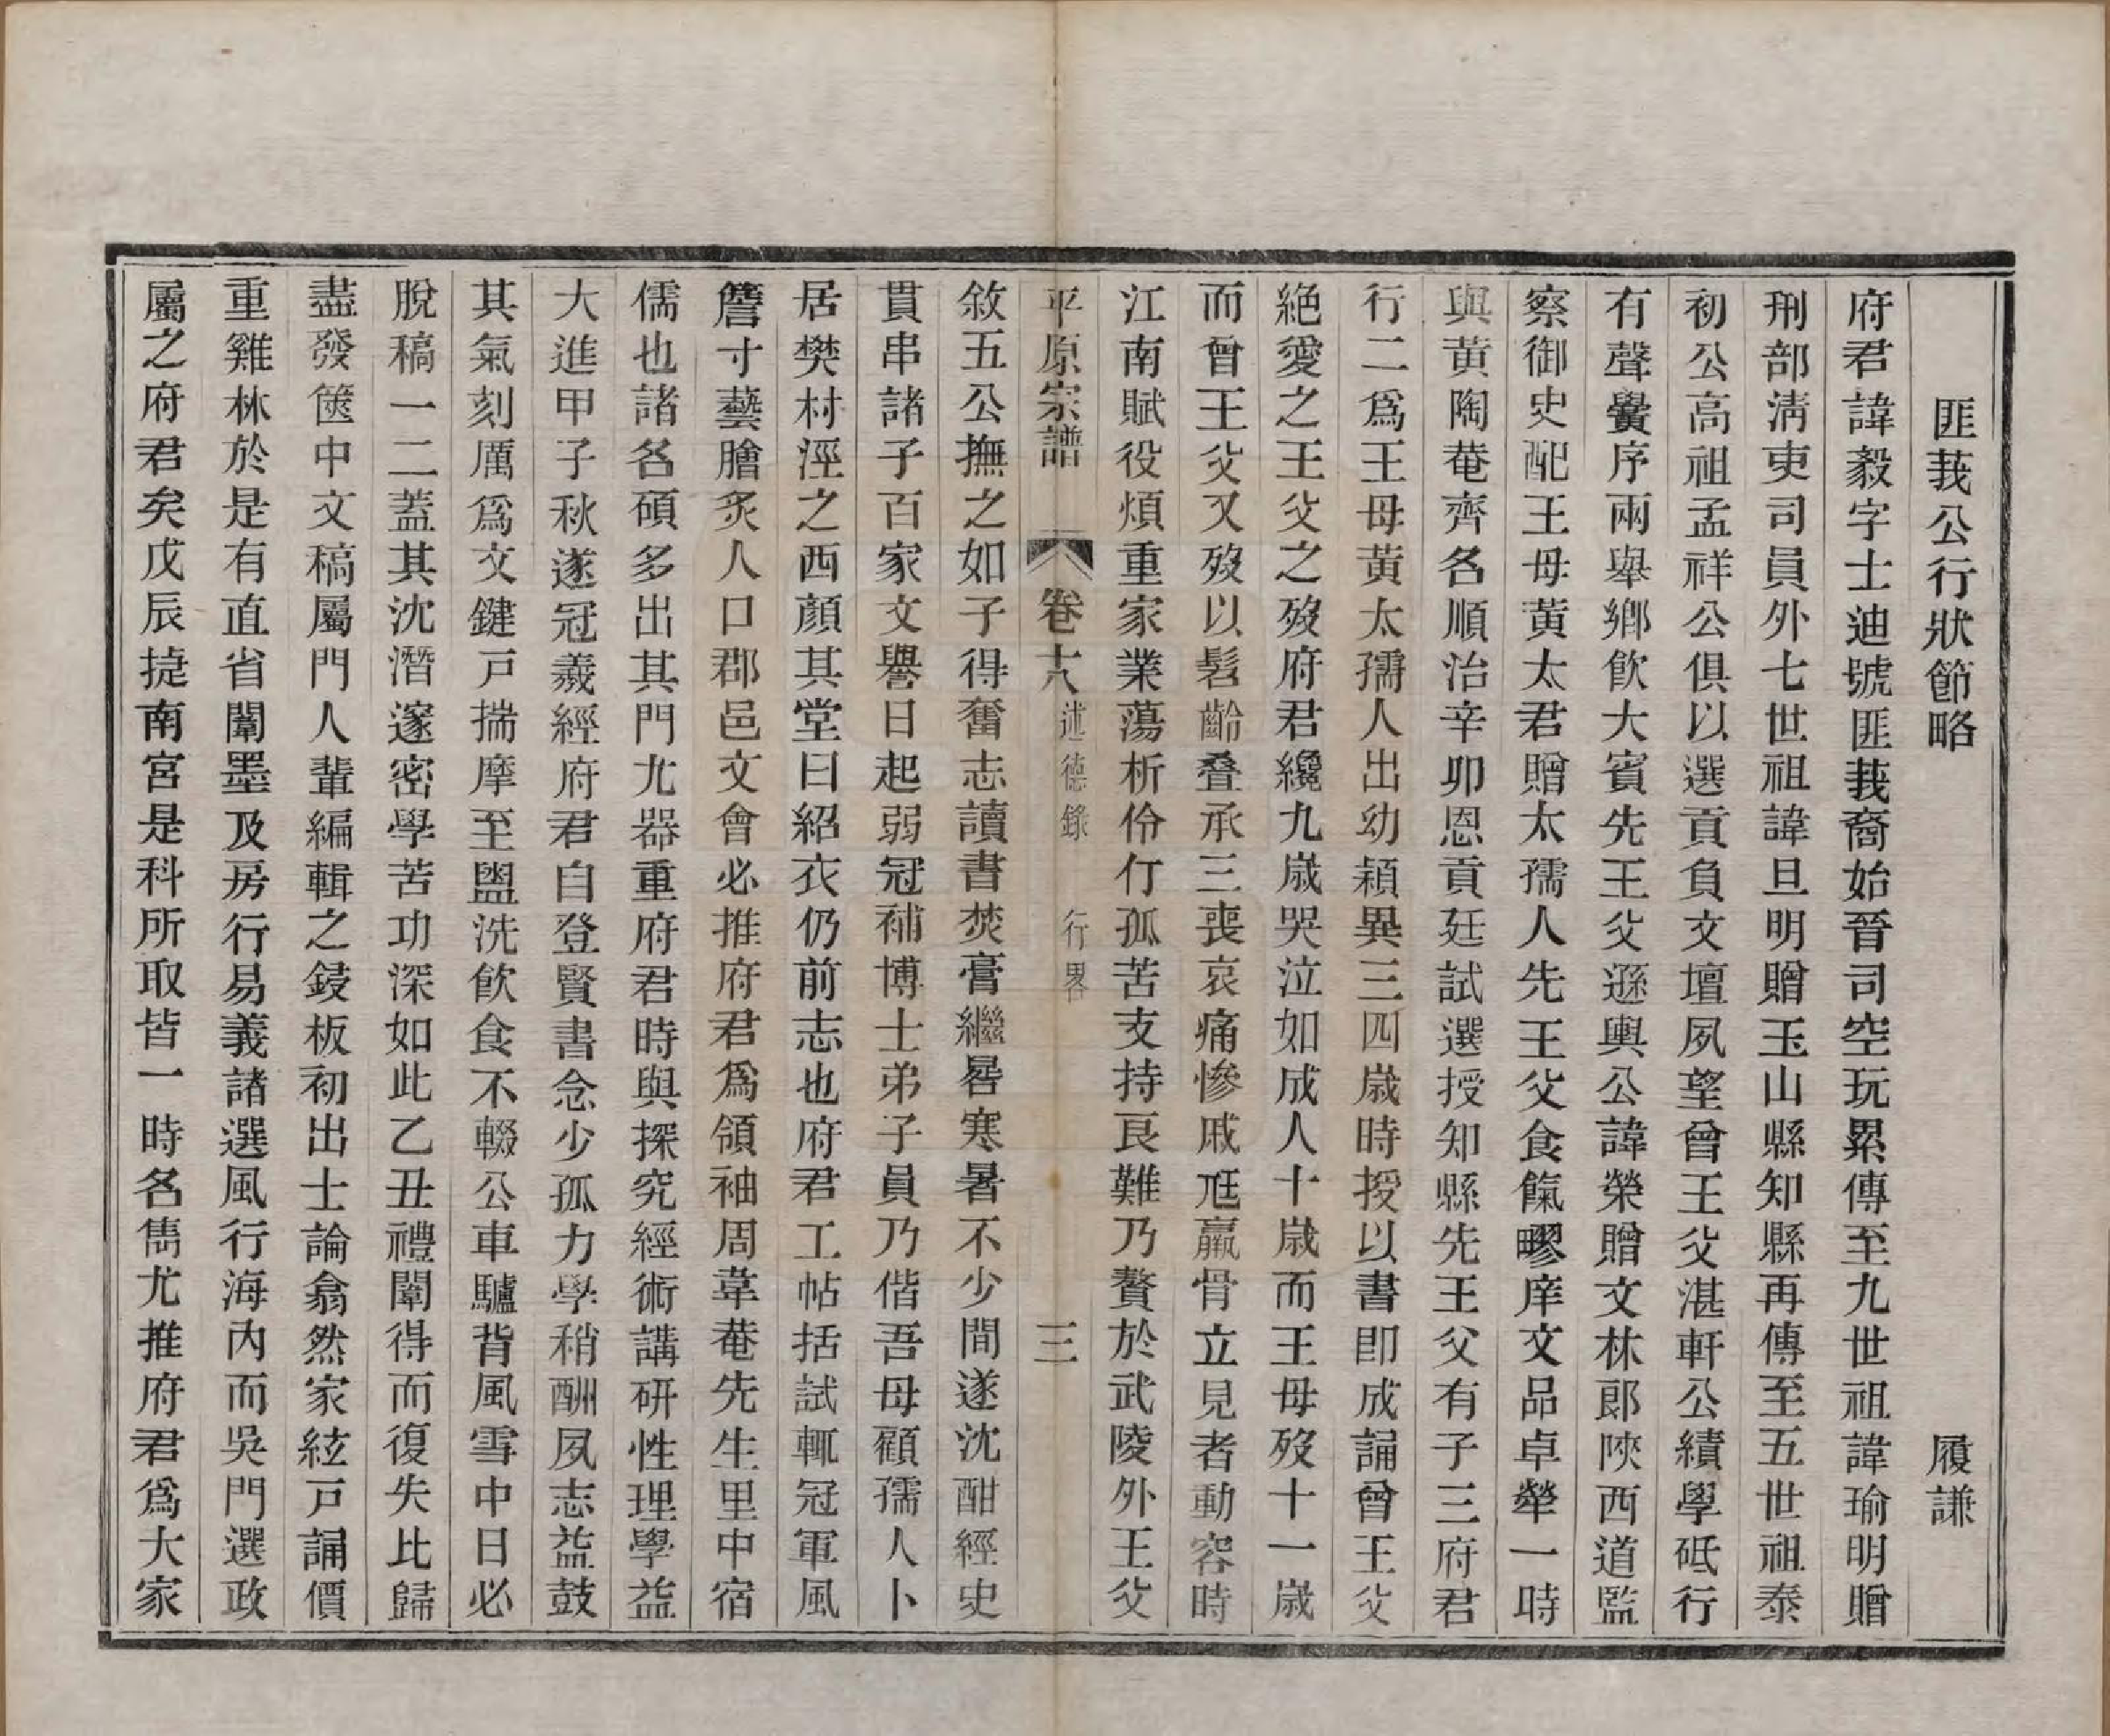 匪莪公行狀節略　履謙
府君諱毅字士迪號匪莪裔始晉司空玩累傳至九世祖諱瑜明贈
刑部淸吏司員外七世祖諱旦明贈玉山縣知縣再傳至五世祖泰
初公高祖孟祥公俱以選貢負文壇夙望曾王父湛軒公續學砥行
有聲黌序兩舉鄕飮大賓先王父遜輿公諱榮贈文林郞陝西道監
察御史配王母黃太君贈太孺人先王父食餼膠庠文品卓犖一時
與黃陶菴齊名順治辛卯恩貢廷試選授知縣先王父有子三府君
行二爲王母黃太孺人出幼穎異三四歲時授以書卽成誦曾王父
絕愛之王父之歿府君纔九歲哭泣如成人十歲而王母歿十一歲
而曾王父又歿以髫齡叠承三喪哀痛慘戚尫羸骨立見者動容時
江南賦役煩重家業蕩析伶仃孤苦支持艮難乃贅於武陵外王父
平原宗譜　卷十八　述德錄　行畧　三
敘五公撫之如子得奮志讀書焚膏繼晷寒暑不少間遂沈酣經史
貫串諸子百家文譽日起弱冠補博士弟子員乃偕吾母顧孺人卜
居樊村涇之西顏其堂曰紹衣仍前志也府君工帖括試輒冠軍風
簷寸藝膾炙人口郡邑文會必推府君爲領袖周韋菴先生里中宿
儒也諸名碩多出其門尤器重府君時與探究經術講硏性理學益
大進甲子秋遂冠羲經府君自登賢書念少孤力學稍酬夙志益鼓
其氣刻厲爲文鍵戸揣摩至盥洗飮食不輟公車驢背風雪中日必
脫稿一二蓋其沈潛邃密學苦功深如此乙丑禮闈得而復失比歸
盡發篋中文稿屬門人輩編輯之鋟板初出士論翕然家絃戸誦價
重雞林於是有直省闈墨及房行易義諸選風行海內而吳門選政
屬之府君矣戊辰捷南宮是科所取皆一時名雋尤推府君爲大家